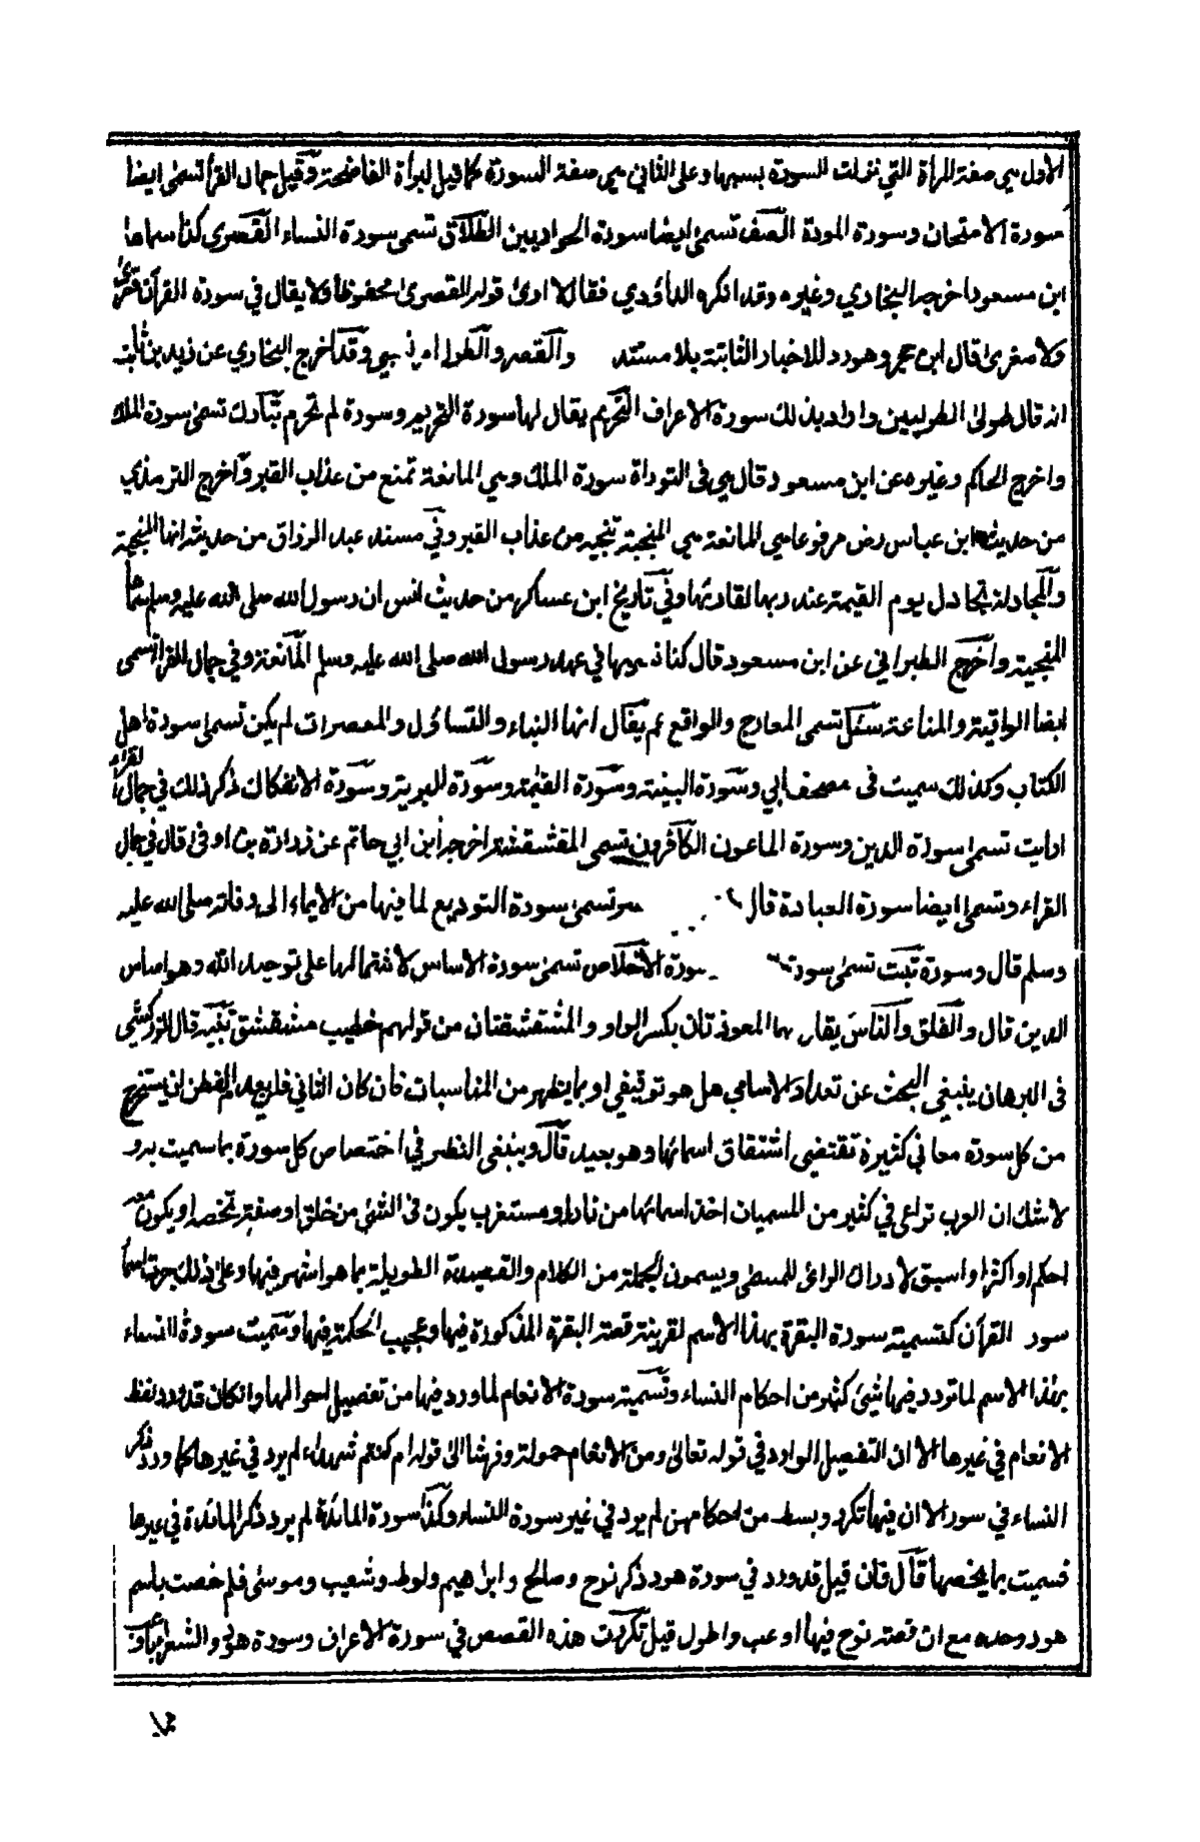 الاول هي صفة المرأة التي نزلت السورة بسببها وعلى الثاني هي صفة السورة كما قيل لبرأة الفاضحة وفي جمال القرأ تسمى ايضا
سورة الامتحان وسورة المودة الصف تسمى ايضا سورة الحواريين الطلاق تسمى سورة النساء القصرى كذا سماها
ابن مسعود اخرجه البخاري وغيره وقد انكره الداؤدي فقال لا ارى قوله القصرى محفوظا ولا يقال في سورة القرآن قصرى
ولا صغرى قال ابن حجر وهو رد للاخبار الثابتة بلا مستند والقصر والطول امر نسبي وقد اخرج البخاري عن زيد بن ثابت
انه قال طولى الطوليين واراد بذلك سورة الاعراف التحريم يقال لها سورة التحريم وسورة لم تحرم تبارك تسمى سورة الملك
واخرج الحاكم وغيره عن ابن مسعود قال هي في التوراة سورة الملك وهي المانعة تمنع من عذاب القبر واخرج الترمذي
من حديث ابن عباس رض مرفوعا هي المانعة هي المنجية تنجيه من عذاب القبر وفي مسند عبد الرزاق من حديثه انها المنجية
والمجادلة تجادل يوم القيمة عند ربها لقارئها وفي تاريخ ابن عساكر من حديث انس ان رسول الله صلى الله عليه وسلم سماها
المنجية واخرج الطبراني عن ابن مسعود قال كنا نسميها في عهد رسول الله صلى الله عليه وسلم المانعة وفي جمال القرا تسمى
ايضا الواقية والمناعة سئل تسمى المعارج والواقع عم يقال انها النباء والتساؤل والمعصرات لم يكن تسمى سورة اهل
الكتاب وكذلك سميت في مصحف ابي وسورة البينة وسورة القيمة وسورة البرية وسورة الانفكاك ذكر ذلك في جمال القراء
ارايت تسمى سورة الدين وسورة الماعون الكافرون تسمى المقشقشة اخرجه ابن ابي حاتم عن زرارة بن اوفى قال في جمال
القراء وتسمى ايضا سورة العبادة قال وتسمى سورة التوديع لما فيها من الايماء الى وفاته صلى الله عليه
وسلم قال وسورة تبت تسمى سورة سورة الاخلاص تسمى سورة الاساس لاشتمالها على توحيد الله وهو اساس
الدين قال والفلق والناس يقال لهما المعوذتان بكسر الواو والمشقشقتان من قولهم خطيب مشقشق تنبيه قال الزركشي
في البرهان ينبغي البحث عن تعداد الاسامي هل هو توقيفي او بما يظهر من المناسبات فان كان الثاني فلم يعدم الفطن ان يستخرج
من كل سورة معاني كثيرة تقتضي اشتقاق اسمائها وهو بعيد قال وينبغي النظر في اختصاص كل سورة بما سميت به و
لا شك ان العرب تراعي في كثير من المسميات اخذ اسمائها من نادر او مستغرب يكون في الشئ من خلق او صفة تخصه او يكون معه
احكم او اكثر او اسبق لادراك الرائ للمسمى ويسمون الجملة من الكلام والقصيدة الطويلة بما هو اشهر فيها وعلى ذلك جرت اسما
سور القرآن كتسمية سورة البقرة بهذا الاسم لقرينة قصة البقرة المذكورة فيها وعجيب الحكمة فيها وسميت سورة النساء
بهذا الاسم لما تردد فيها شئ كثير من احكام النساء وتسمية سورة الانعام لما ورد فيها من تفصيل احوالها وان كان قد ورد لفظ
الانعام في غيرها الا ان التفصيل الوارد في قوله تعالى ومن الانعام حمولة وفرشا الى قوله ام كنتم شهداء لم يرد في غيرها كما ورد ذكر
النساء في سور الا ان فيها تكرر وبسط من احكامهن لم يرد في غير سورة النساء وكذا سورة المائدة لم يرد ذكر المائدة في غيرها
فسميت بما يخصها قال فان قيل قد ورد في سورة هود ذكر نوح وصالح وابراهيم ولوط وشعيب وموسى فلم خصت باسم
هود وحده مع ان قصة نوح فيها اوعب واطول قيل تكررت هذه القصص في سورة الاعراف وسورة هود والشعراء باوعب